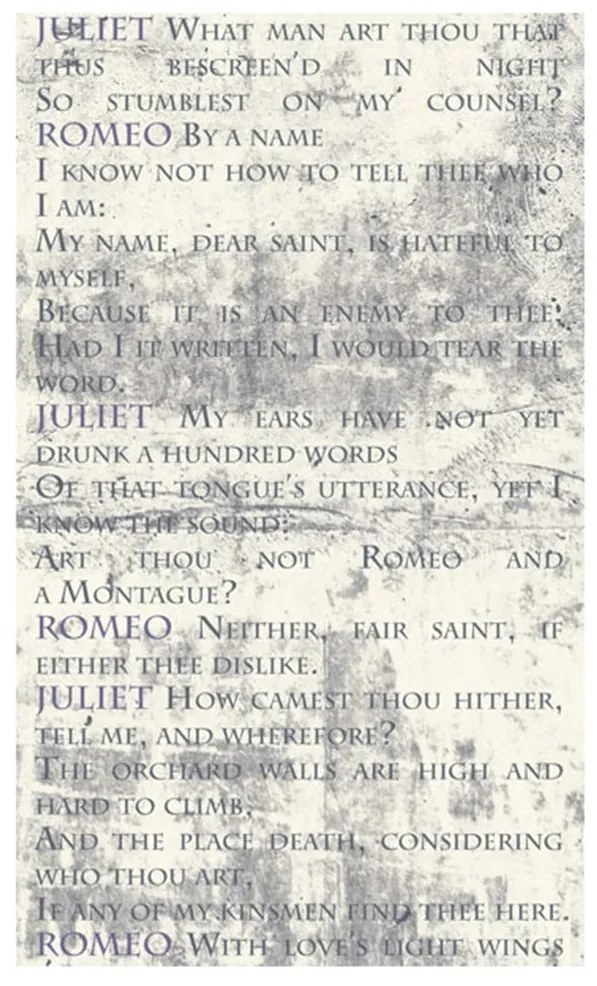 JULIET WHAT MAN ART THOU THAT
THUS BESCREEN'D IN NIGHT
SO STUMBLEST ON MY COUNSEL?
ROMEO BY A NAME
I KNOW NOT HOW TO TELL THEE WHO
I AM:
MY NAME, DEAR SAINT, IS HATEFUL TO
MYSELF,
BECAUSE IT IS AN ENEMY TO THEE;
HAD I IT WRITTEN, I WOULD TEAR THE
WORD.
JULIET MY EARS HAVE NOT YET
DRUNK A HUNDRED WORDS
OF THAT TONGUE'S UTTERANCE, YET I
KNOW THE SOUND:
ART THOU NOT ROMEO AND
A MONTAGUE?
ROMEO NEITHER, FAIR SAINT, IF
EITHER THEE DISLIKE.
JULIET HOW CAMEST THOU HITHER,
TELL ME, AND WHEREFORE?
THE ORCHARD WALLS ARE HIGH AND
HARD TO CLIMB,
AND THE PLACE DEATH, CONSIDERING
WHO THOU ART,
IF ANY OF MY KINSMEN FIND THEE HERE.
ROMEO WITH LOVE'S LIGHT WINGS